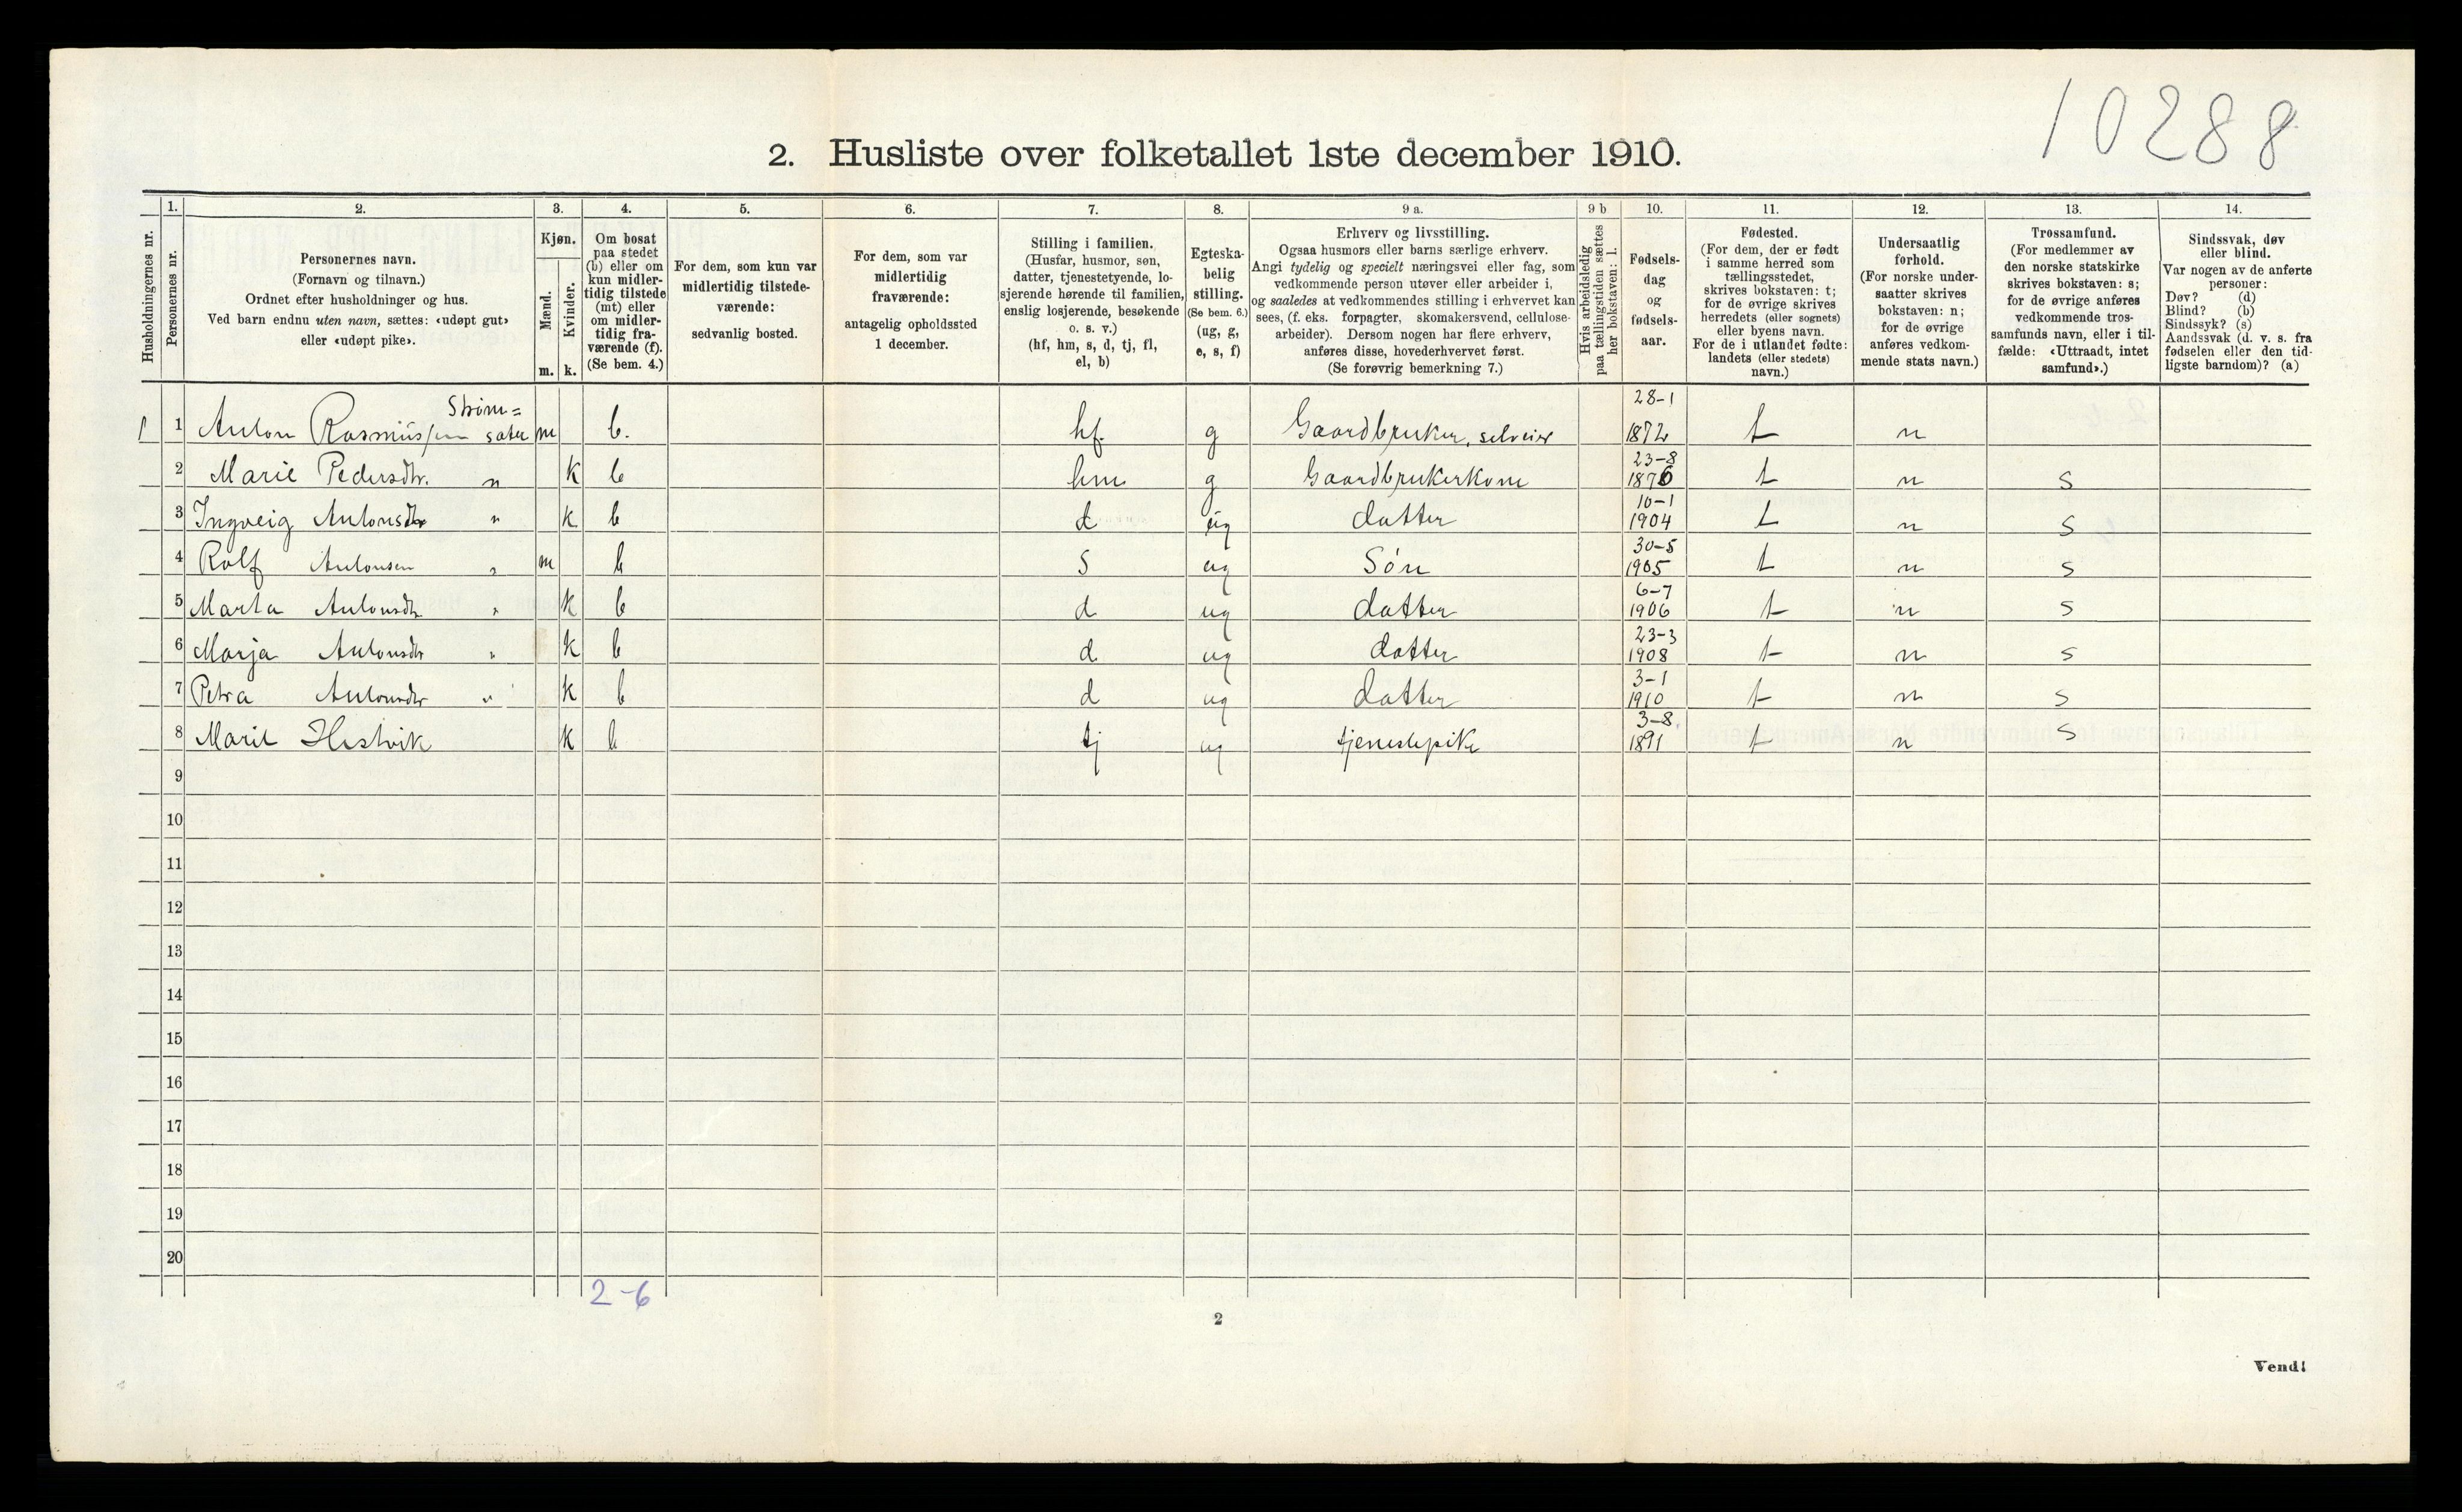 10288
2. Husliste over folketallet 1ste december 1910.
Husholdningernes nr.
1.
Personernes nr.
2.
Personernes navn.
(Fornavn og tilnavn.)
Ordnet efter husholdninger og hus.
Ved barn endnu uten navn, sættes: «udøpt gut»
eller «udøpt pike».
3.
Kjøn.
Mænd.
Kvinder.
m. k.
4.
Om bosat
paa stedet
(b) eller om
kun midler-
tidig tilstede
(mt) eller
om midler-
tidig fra-
værende (f).
(Se bem. 4.)
5.
For dem, som kun var
midlertidig tilstede-
værende:
sedvanlig bosted.
6.
For dem, som var
midlertidig
fraværende:
antagelig opholdssted
1 december.
7.
Stilling i familien.
(Husfar, husmor, søn,
datter, tjenestetyende, lo-
sjerende hørende til familien,
enslig losjerende, besøkende
o. s. v.)
(hf, hm, s, d, tj, fl,
el, b)
8.
Egteska-
belig
stilling.
(Se bem. 6.)
(ug, g,
e, s, f)
9 a.
Erhverv og livsstilling.
Ogsaa husmors eller barns særlige erhverv.
Angi tydelig og specielt næringsvei eller fag, som
vedkommende person utøver eller arbeider i,
og saaledes at vedkommendes stilling i erhvervet kan
sees, (f. eks. forpagter, skomakersvend, cellulose-
arbeider). Dersom nogen har flere erhverv,
anføres disse, hovederhvervet først.
(Se forøvrig bemerkning 7.)
9 b
Hvis arbeidsledig
paa tællingstiden sættes
her bokstaven: l.
10.
Fødsels-
dag
og
fødsels-
aar.
11.
Fødested.
(For dem, der er født
i samme herred som
tællingsstedet,
skrives bokstaven: t;
for de øvrige skrives
herredets (eller sognets)
eller byens navn.
For de i utlandet fødte:
landets (eller stedets)
navn.)
12.
Undersaatlig
forhold.
(For norske under-
saatter skrives
bokstaven: n;
for de øvrige
anføres vedkom-
mende stats navn.)
13.
Trossamfund.
(For medlemmer av
den norske statskirke
skrives bokstaven: s;
for de øvrige anføres
vedkommende tros-
samfunds navn, eller i til-
fælde: «Uttraadt, intet
samfund».)
14.
Sindssvak, døv
eller blind.
Var nogen av de anførte
personer:
Døv? (d)
Blind? (b)
Sindssyk? (s)
Aandssvak (d. v. s. fra
fødselen eller den tid-
ligste barndom)? (a)
Strøm=
28-1
1 1 Anton Rasmussen sæter m b. hf. g Gaardbruker, selveier 1872 t n
23-8
2 Marie Pedersdtr. " k b hm g Gaardbrukerkone 1876 t n s
10-1
3 Ingveig Antonsdtr " k b d ug datter 1904 t n s
30-5
4 Rolf Antonsen " m b s ug Søn 1905 t n s
6-7
5 Marta Antonsdtr " k b d ug datter 1906 t n s
23-3
6 Marja Antonsdtr " k b d ug datter 1908 t n s
3-1
7 Petra Antonsdtr " k b d ug datter 1910 t n s
3-8
8 Marit Hestvik k b tj ug tjenestepike 1891 t n s
9
10
11
12
13
14
15
16
17
18
19
20
2-6
2
Vend!